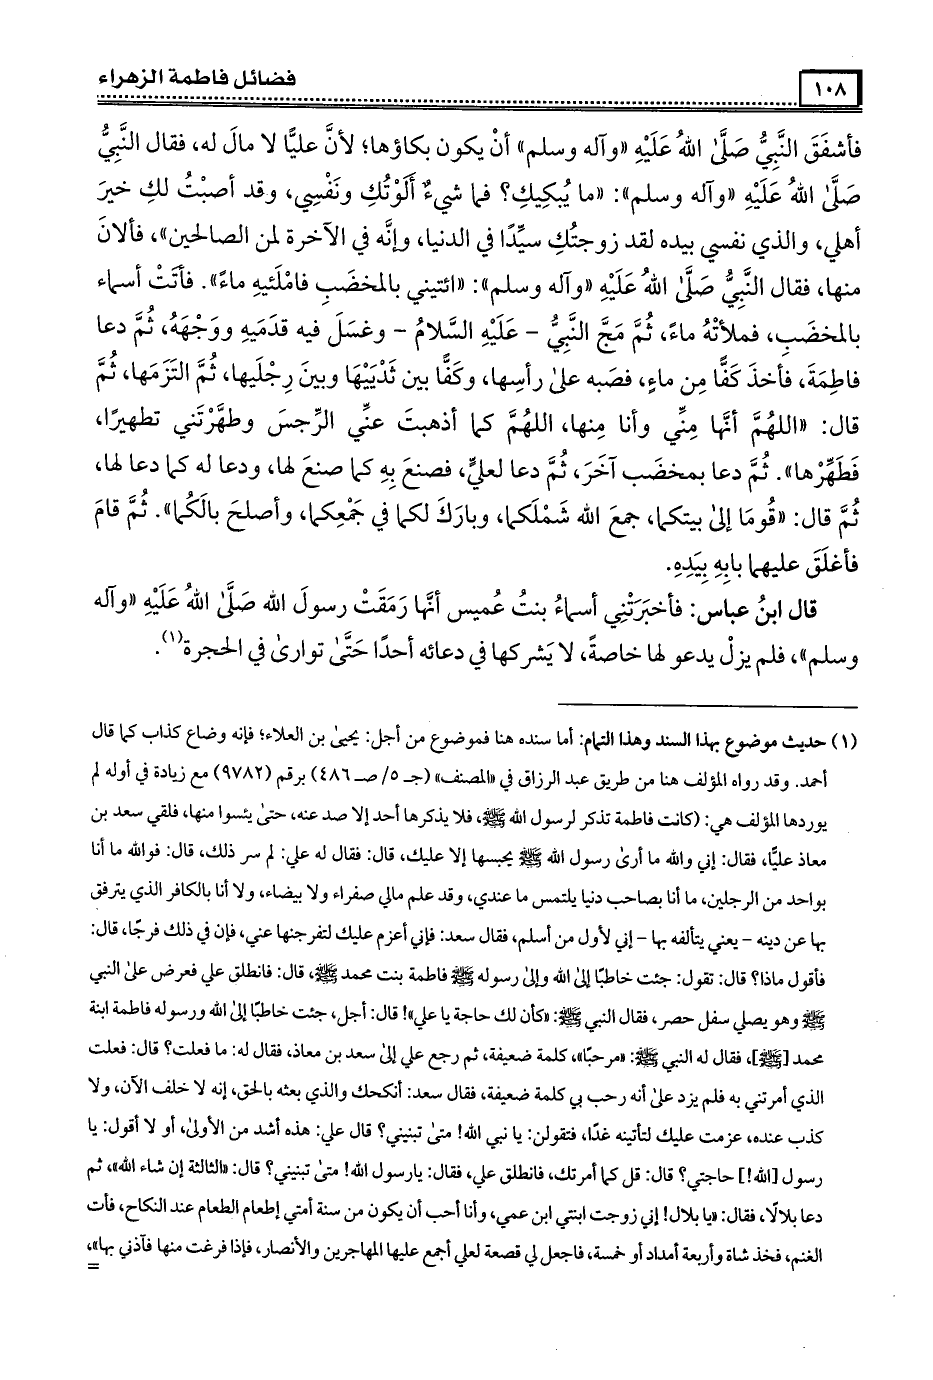 ١٠٨
فضائل فاطمة الزهراء
فأشفَقَ النَّبِيُّ صَلَّىٰ اللهُ عَلَيْهِ «وآله وسلم» أنْ يكون بكاؤها؛ لأنَّ عليًّا لا مالَ له، فقال النَّبِيُّ
صَلَّىٰ اللهُ عَلَيْهِ «وآله وسلم»: «ما يُبكِيكِ؟ فما شيءٌ أَلَوْتُكِ ونَفْسِي، وقد أصبْتُ لكِ خيرَ
أهلي، والذي نفسي بيده لقد زوجتُكِ سيِّدًا في الدنيا، وإنَّه في الآخرة لمن الصالحين»، فألانَ
منها، فقال النَّبِيُّ صَلَّىٰ اللهُ عَلَيْهِ «وآله وسلم»: «ائتيني بالمخضَبِ فامْلَئيهِ ماءً». فأتَتْ أسماء
بالمخضَبِ، فملأتْهُ ماءً، ثُمَّ مَجَّ النَّبِيُّ – عَلَيْهِ السَّلامُ – وغسَلَ فيه قدَمَيهِ ووَجْهَهُ، ثُمَّ دعا
فاطِمَةَ، فأخذَ كَفًّا مِن ماءٍ، فصَبه علىٰ رأسِها، وكَفًّا بين ثَدْيَيْهَا وبينَ رِجْلَيها، ثُمَّ التَزَمَها، ثُمَّ
قال: «اللهُمَّ أنَّها مِنِّي وأنا مِنها، اللهُمَّ كما أذهبتَ عنِّي الرِّجسَ وطهَّرْتَني تطهيرًا،
فَطَهِّرْها». ثُمَّ دعا بمخضَب آخَرَ، ثُمَّ دعا لعليٍّ، فصنعَ بِهِ كما صنعَ لها، ودعا له كما دعا لها،
ثُمَّ قال: «قُومَا إلىٰ بيتكما، جمعَ الله شَمْلَكما، وبارَكَ لكما في جَمْعِكما، وأصلحَ بالَكُما». ثُمَّ قامَ
فأغلَقَ عليهما بابهِ بِيَدِهِ.
قال ابنُ عباس: فأخبَرَتْنِي أسماءُ بنتُ عُميس أنَّها رَمَقَتْ رسولَ الله صَلَّىٰ اللهُ عَلَيْهِ «وآله
وسلم»، فلم يزلْ يدعو لها خاصةً، لا يَشركها في دعائه أحدًا حَتَّىٰ توارىٰ في الحجرة(١).
(١) حديث موضوع بهذا السند وهذا التمام: أما سنده هنا فموضوع من أجل: يحيىٰ بن العلاء؛ فإنه وضاع كذاب كما قال
أحمد. وقد رواه المؤلف هنا من طريق عبد الرزاق في «المصنف» (جـ ٥/ صـ ٤٨٦) برقم (٩٧٨٢) مع زيادة في أوله لم
يوردها المؤلف هي: (كانت فاطمة تذكر لرسول الله ﷺ، فلا يذكرها أحد إلا صد عنه، حتىٰ يئسوا منها، فلقي سعد بن
معاذ عليًّا، فقال: إني والله ما أرىٰ رسول الله ﷺ يحبسها إلا عليك، قال: فقال له علي: لم سر ذلك، قال: فوالله ما أنا
بواحد من الرجلين، ما أنا بصاحب دنيا يلتمس ما عندي، وقد علم مالي صفراء ولا بيضاء، ولا أنا بالكافر الذي يترفق
بها عن دينه – يعني يتألفه بها – إني لأول من أسلم، فقال سعد: فإني أعزم عليك لتفرجنها عني، فإن في ذلك فرجًا، قال:
فأقول ماذا؟ قال: تقول: جئت خاطبًا إلىٰ الله وإلىٰ رسوله ﷺ فاطمة بنت محمد ﷺ، قال: فانطلق علي فعرض علىٰ النبي
ﷺ وهو يصلي سفل حصر، فقال النبي ﷺ: «كأن لك حاجة يا علي»! قال: أجل، جئت خاطبًا إلىٰ الله ورسوله فاطمة ابنة
محمد [ﷺ]، فقال له النبي ﷺ: «مرحبًا»، كلمة ضعيفة، ثم رجع علي إلىٰ سعد بن معاذ، فقال له: ما فعلت؟ قال: فعلت
الذي أمرتني به فلم يزد علىٰ أنه رحب بي كلمة ضعيفة، فقال سعد: أنكحك والذي بعثه بالحق، إنه لا خلف الآن، ولا
كذب عنده، عزمت عليك لتأتينه غدًا، فتقولن: يا نبي الله! متىٰ تبنيني؟ قال علي: هذه أشد من الأولىٰ، أو لا أقول: يا
رسول [الله!] حاجتي؟ قال: قل كما أمرتك، فانطلق علي، فقال: يارسول الله! متىٰ تبنيني؟ قال: «الثالثة إن شاء الله»، ثم
دعا بلالًا، فقال: «يا بلال! إني زوجت ابنتي ابن عمي، وأنا أحب أن يكون من سنة أمتي إطعام الطعام عند النكاح، فأت
الغنم، فخذ شاة وأربعة أمداد أو خمسة، فاجعل لي قصعة لعلي أجمع عليها المهاجرين والأنصار، فإذا فرغت منها فآذني بها»،
=